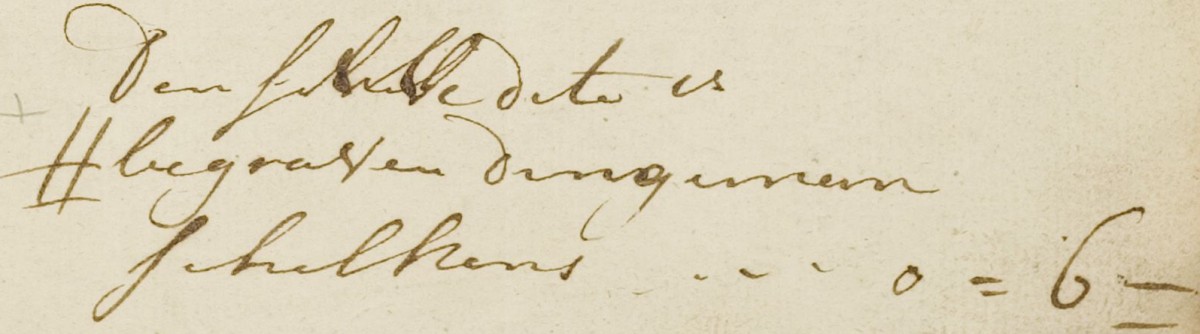 Den selve dito is
# begraven dingenem
schelkens . . . . 0 = 6 —